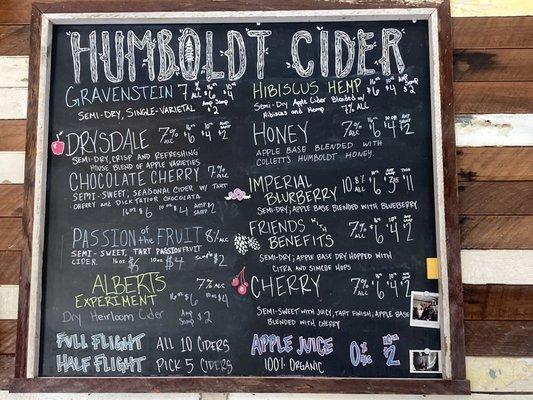 HUMBOLDT CIDER
GRAVENSTEIN 7% ALC 16oz $6 10oz $4
AMP SAMP $2
SEMI-DRY, SINGLE-VARIETAL
DRYSDALE 7% ALC 16oz $6 10oz $4 AMP SAMP $2
SEMI-DRY, CRISP AND REFRESHING
HOUSE BLEND OF APPLE VARIETIES
CHOCOLATE CHERRY 7% ALC
SEMI-SWEET, SEASONAL CIDER W/ TART
CHERRY AND DICK TAYLOR CHOCOLATA
16oz $6 10oz $4 AMP SAMP $2
PASSION of the FRUIT 8% ALC
SEMI-SWEET, TART PASSION FRUIT
CIDER 16oz $6 10oz $4
ALBERT'S 7% ALC
EXPERIMENT 16oz $6 10oz $4
Dry Heirloom Cider AMP SAMP $2
FULL FLIGHT ALL 10 CIDERS
HALF FLIGHT PICK 5 CIDERS
HIBISCUS HEMP 16oz $6 10oz $4 AMP SAMP $2
Semi-Dry Apple Cider Blended w/
Hibiscus and Hemp 7% ALC
HONEY 7% ALC 16oz $6 10oz $4 $2
APPLE BASE BLENDED WITH
COLLETTS HUMBOLDT HONEY.
IMPERIAL
BLURBERRY 10% ALC $6
SEMI-DRY; APPLE BASE BLENDED WITH BLUEBERRY
FRIENDS WITH
BENEFITS 7% ALC 16oz $6 10oz $4 $2
SEMI-DRY; APPLE BASE DRY HOPPED WITH
CITRA AND SIMCOE HOPS
CHERRY 7% ALC 16oz $6 10oz $4 $2
SEMI-SWEET WITH JUICY, TART FINISH; APPLE BASE
BLENDED WITH CHERRY
APPLE JUICE 0% ALC 10oz $2
100% ORGANIC